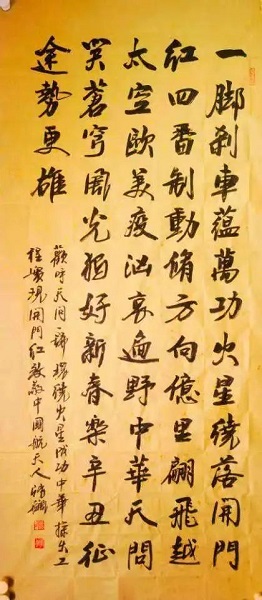 一脚刹車蘊萬功火星繞落開門
紅四番制動脩方向億里翩飛越
太空歐美疫汹哀遍野中華天問
笑蒼穹風光獨好新春樂辛丑征
途勢更雄
歡呼天问一號環繞火星成功中華探火工
程實現開門紅致敬中國航天人